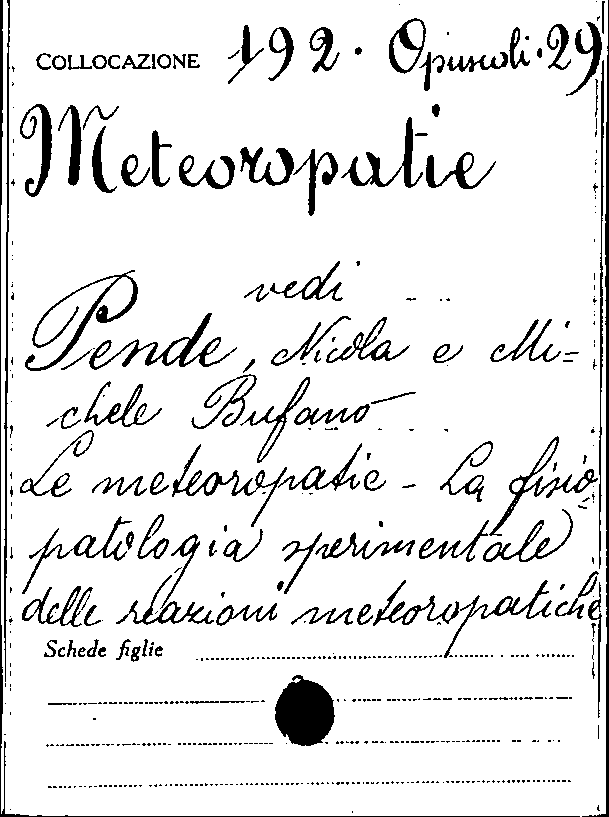 COLLOCAZIONE 192. Opuscoli. 29
Meteoropatie
vedi
Pende, Nicola e Mi=
chele Bufano
Le meteoropatie - La fisio
patologia sperimentale
delle reazioni meteoropatiche
Schede figlie